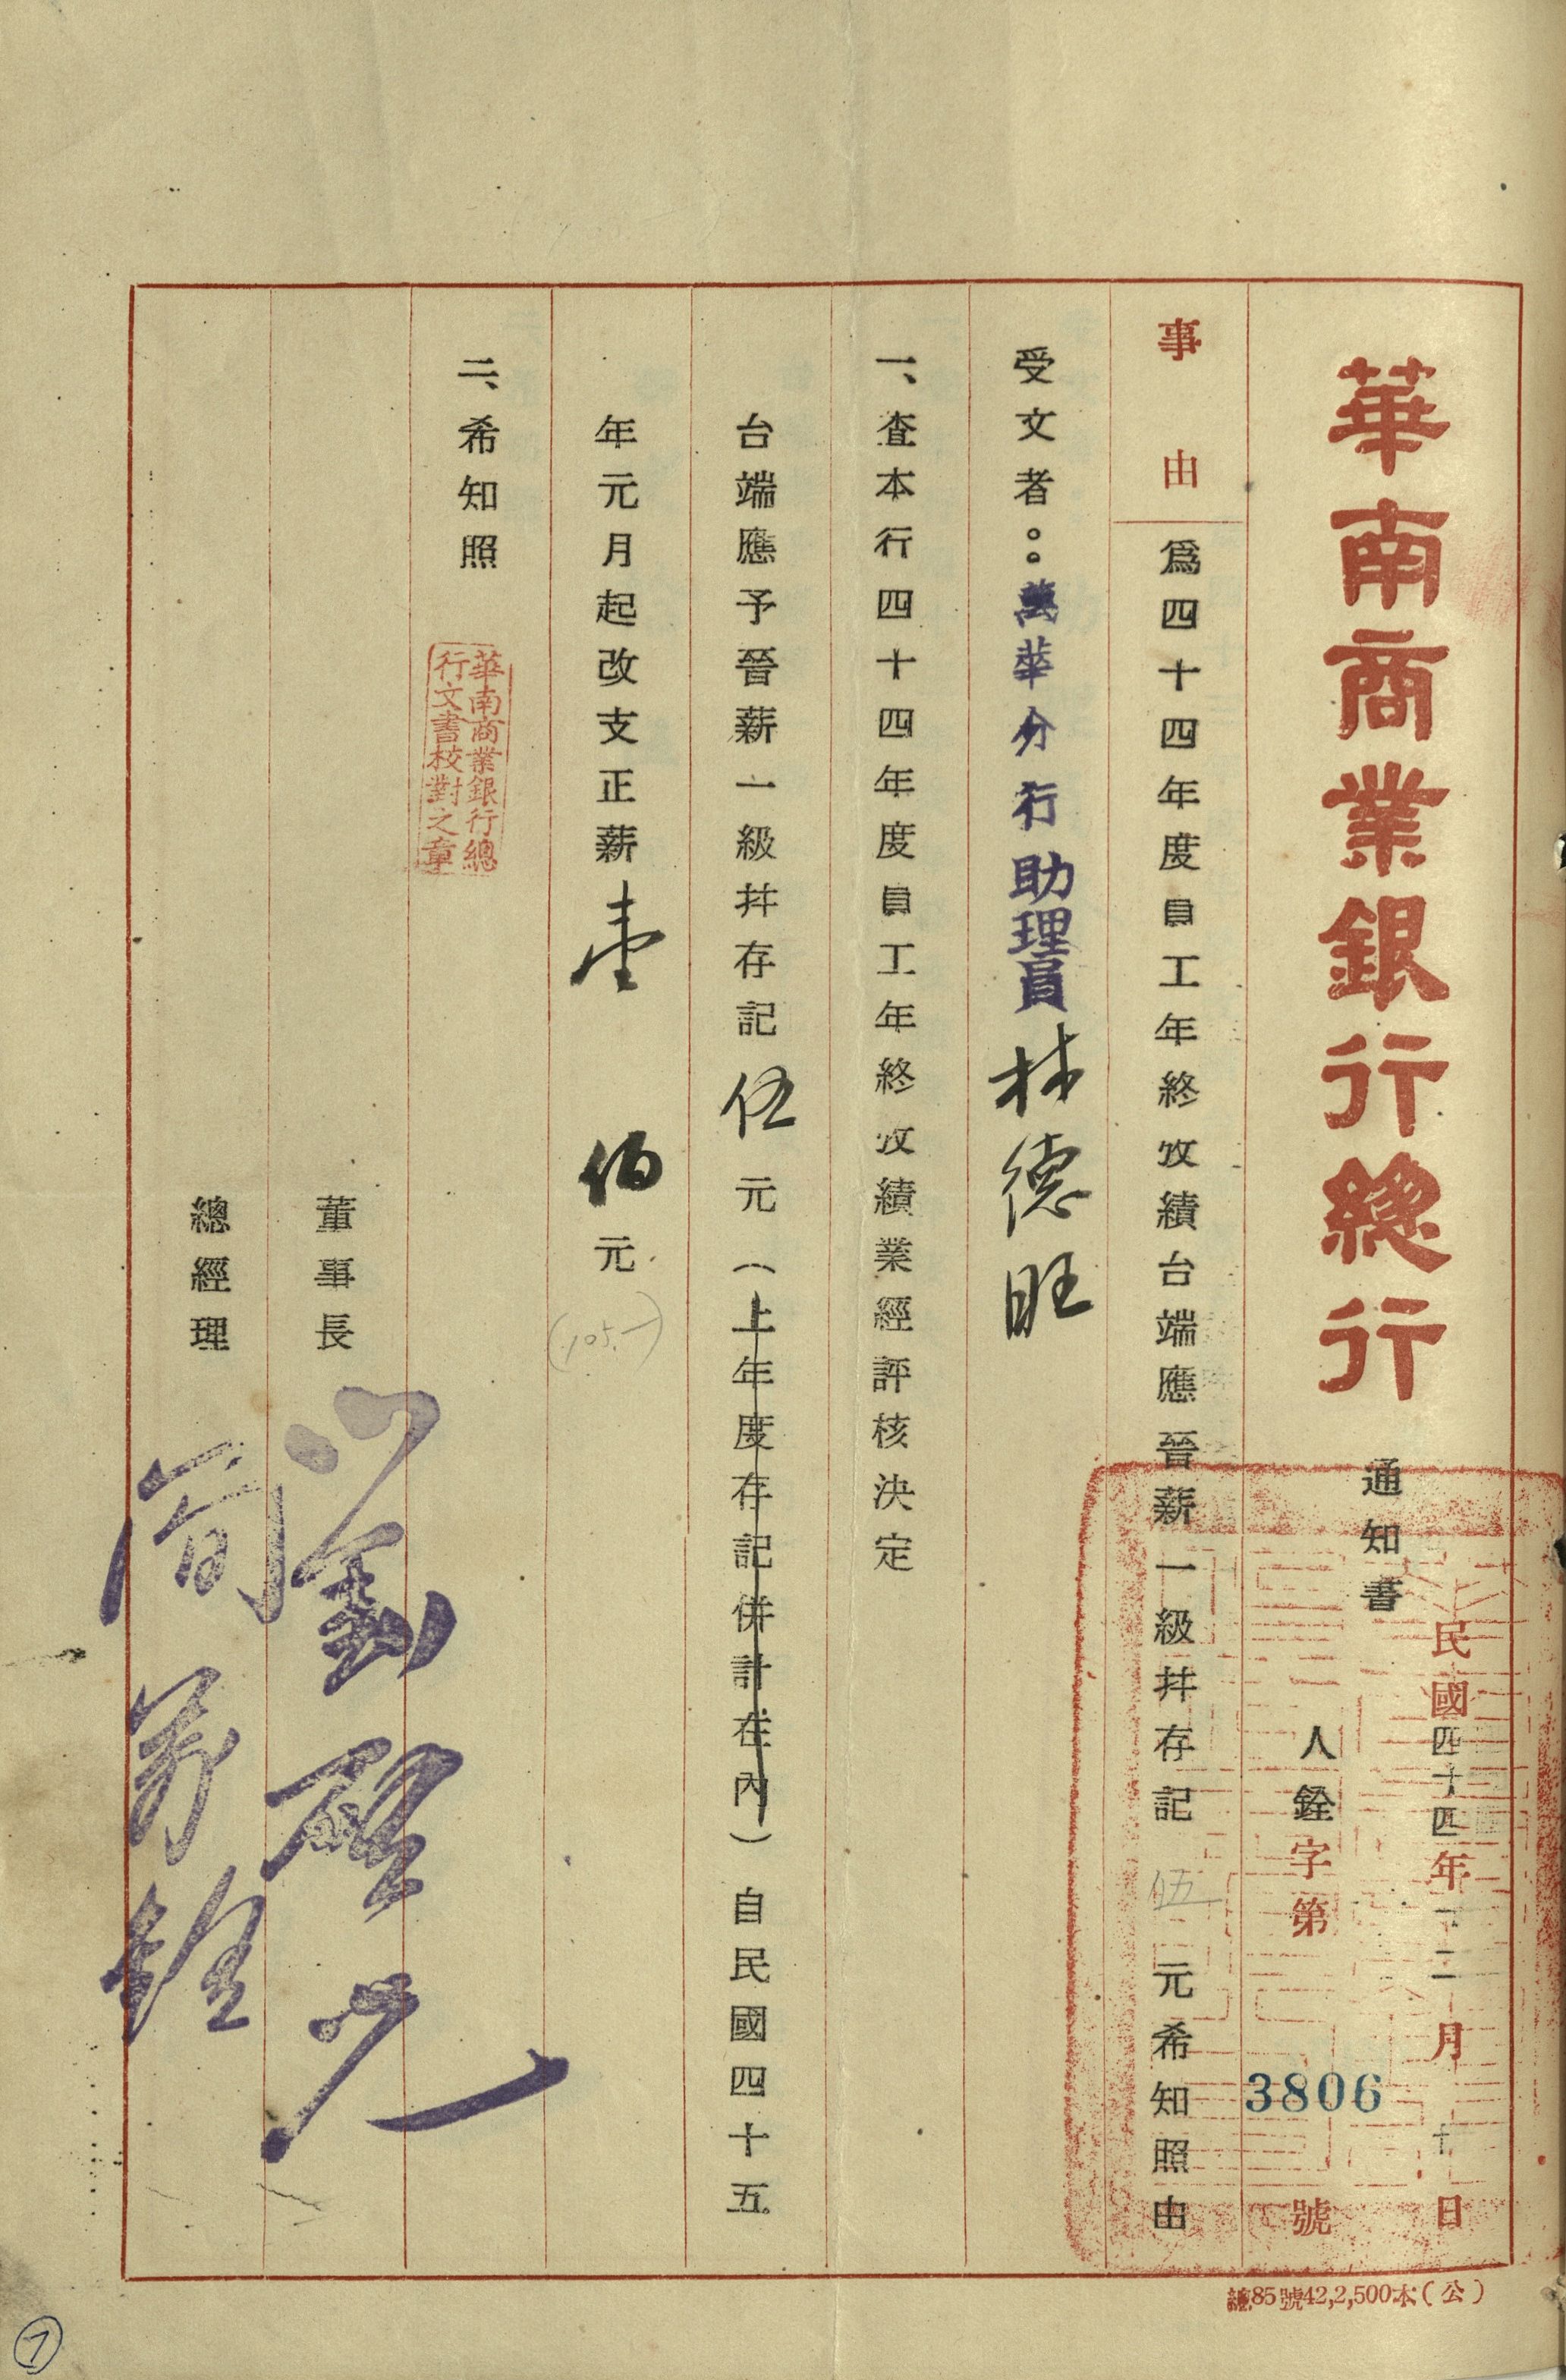 華南商業銀行總行
通知書
民國四十四年十二月十日
人銓字第3806號
事由
為四十四年度員工年終攷績台端應晉薪一級幷存記伍元希知照由
受文者：萬華分行助理員林德旺
一、查本行四十四年度員工年終攷績業經評核決定
台端應予晉薪一級幷存記伍元(上年度存記併計在內)自民國四十五
年元月起改支正薪壹伯元
(105.—)
二、希知照
華南商業銀行總
行文書校對之章
董事長 劉啓光
總經理
總85號42,2,500本(公)
7